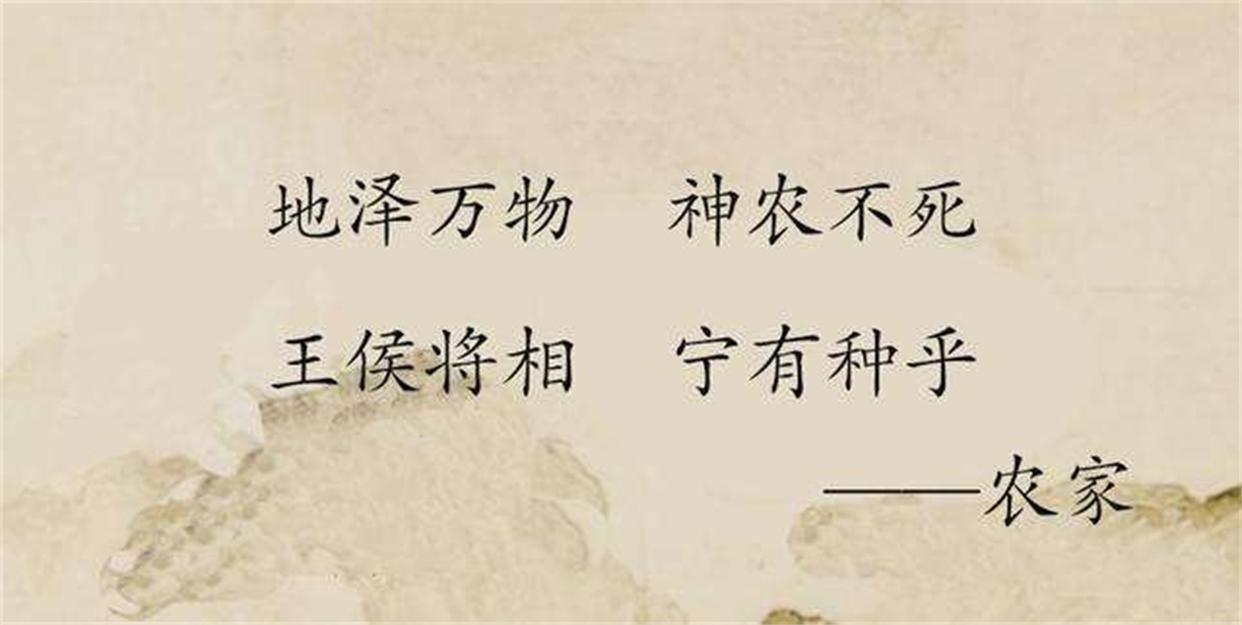 地泽万物 神农不死
王侯将相 宁有种乎
——农家